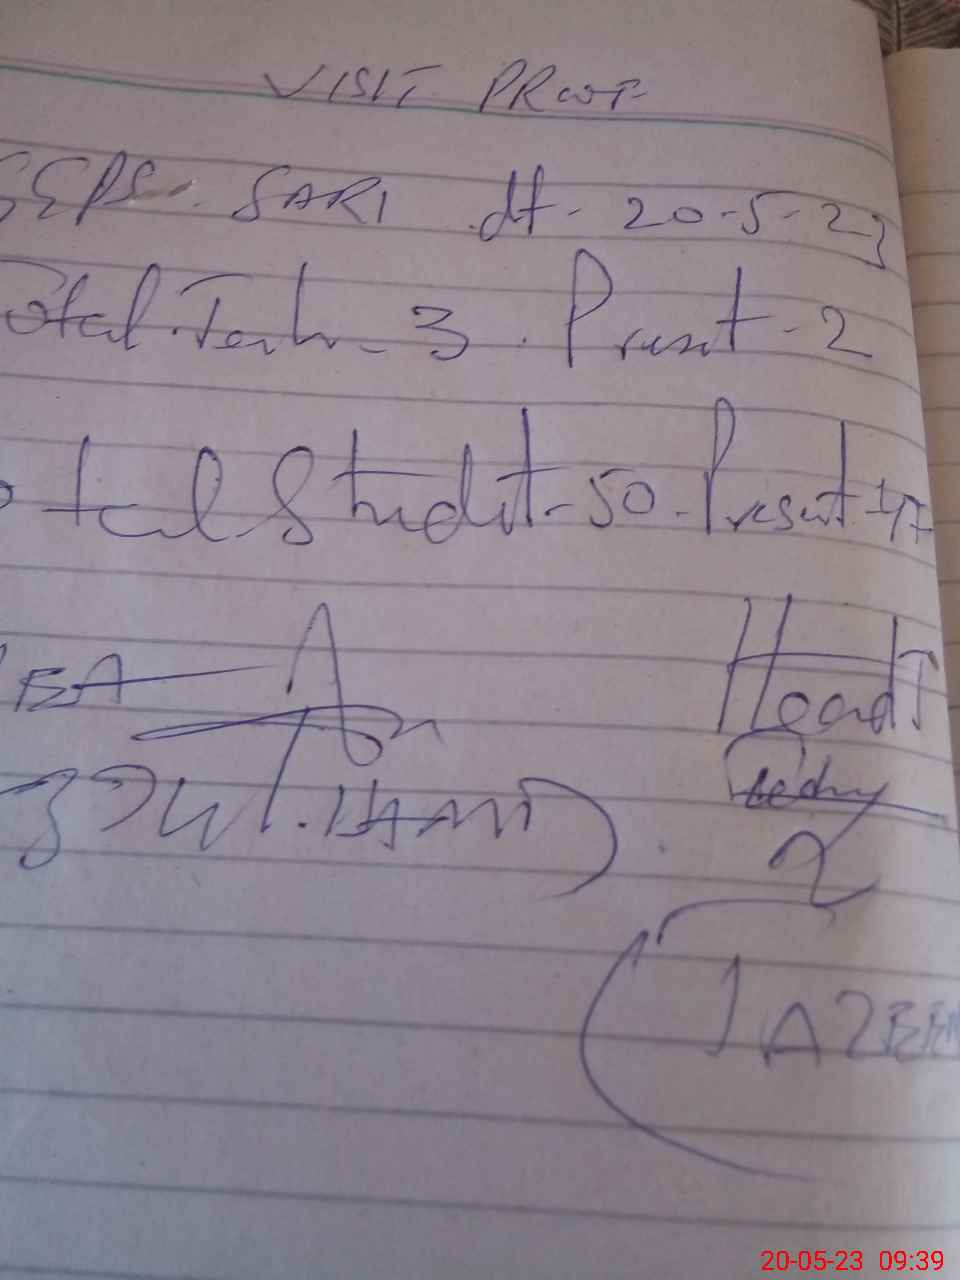 VISIT PROOF
GEPS. SARI dt- 20-5-23
Total.Teach-3. Present-2
total.Student-50.Present-47
EA
HeadT
JAZEEN
20-05-23 09:39